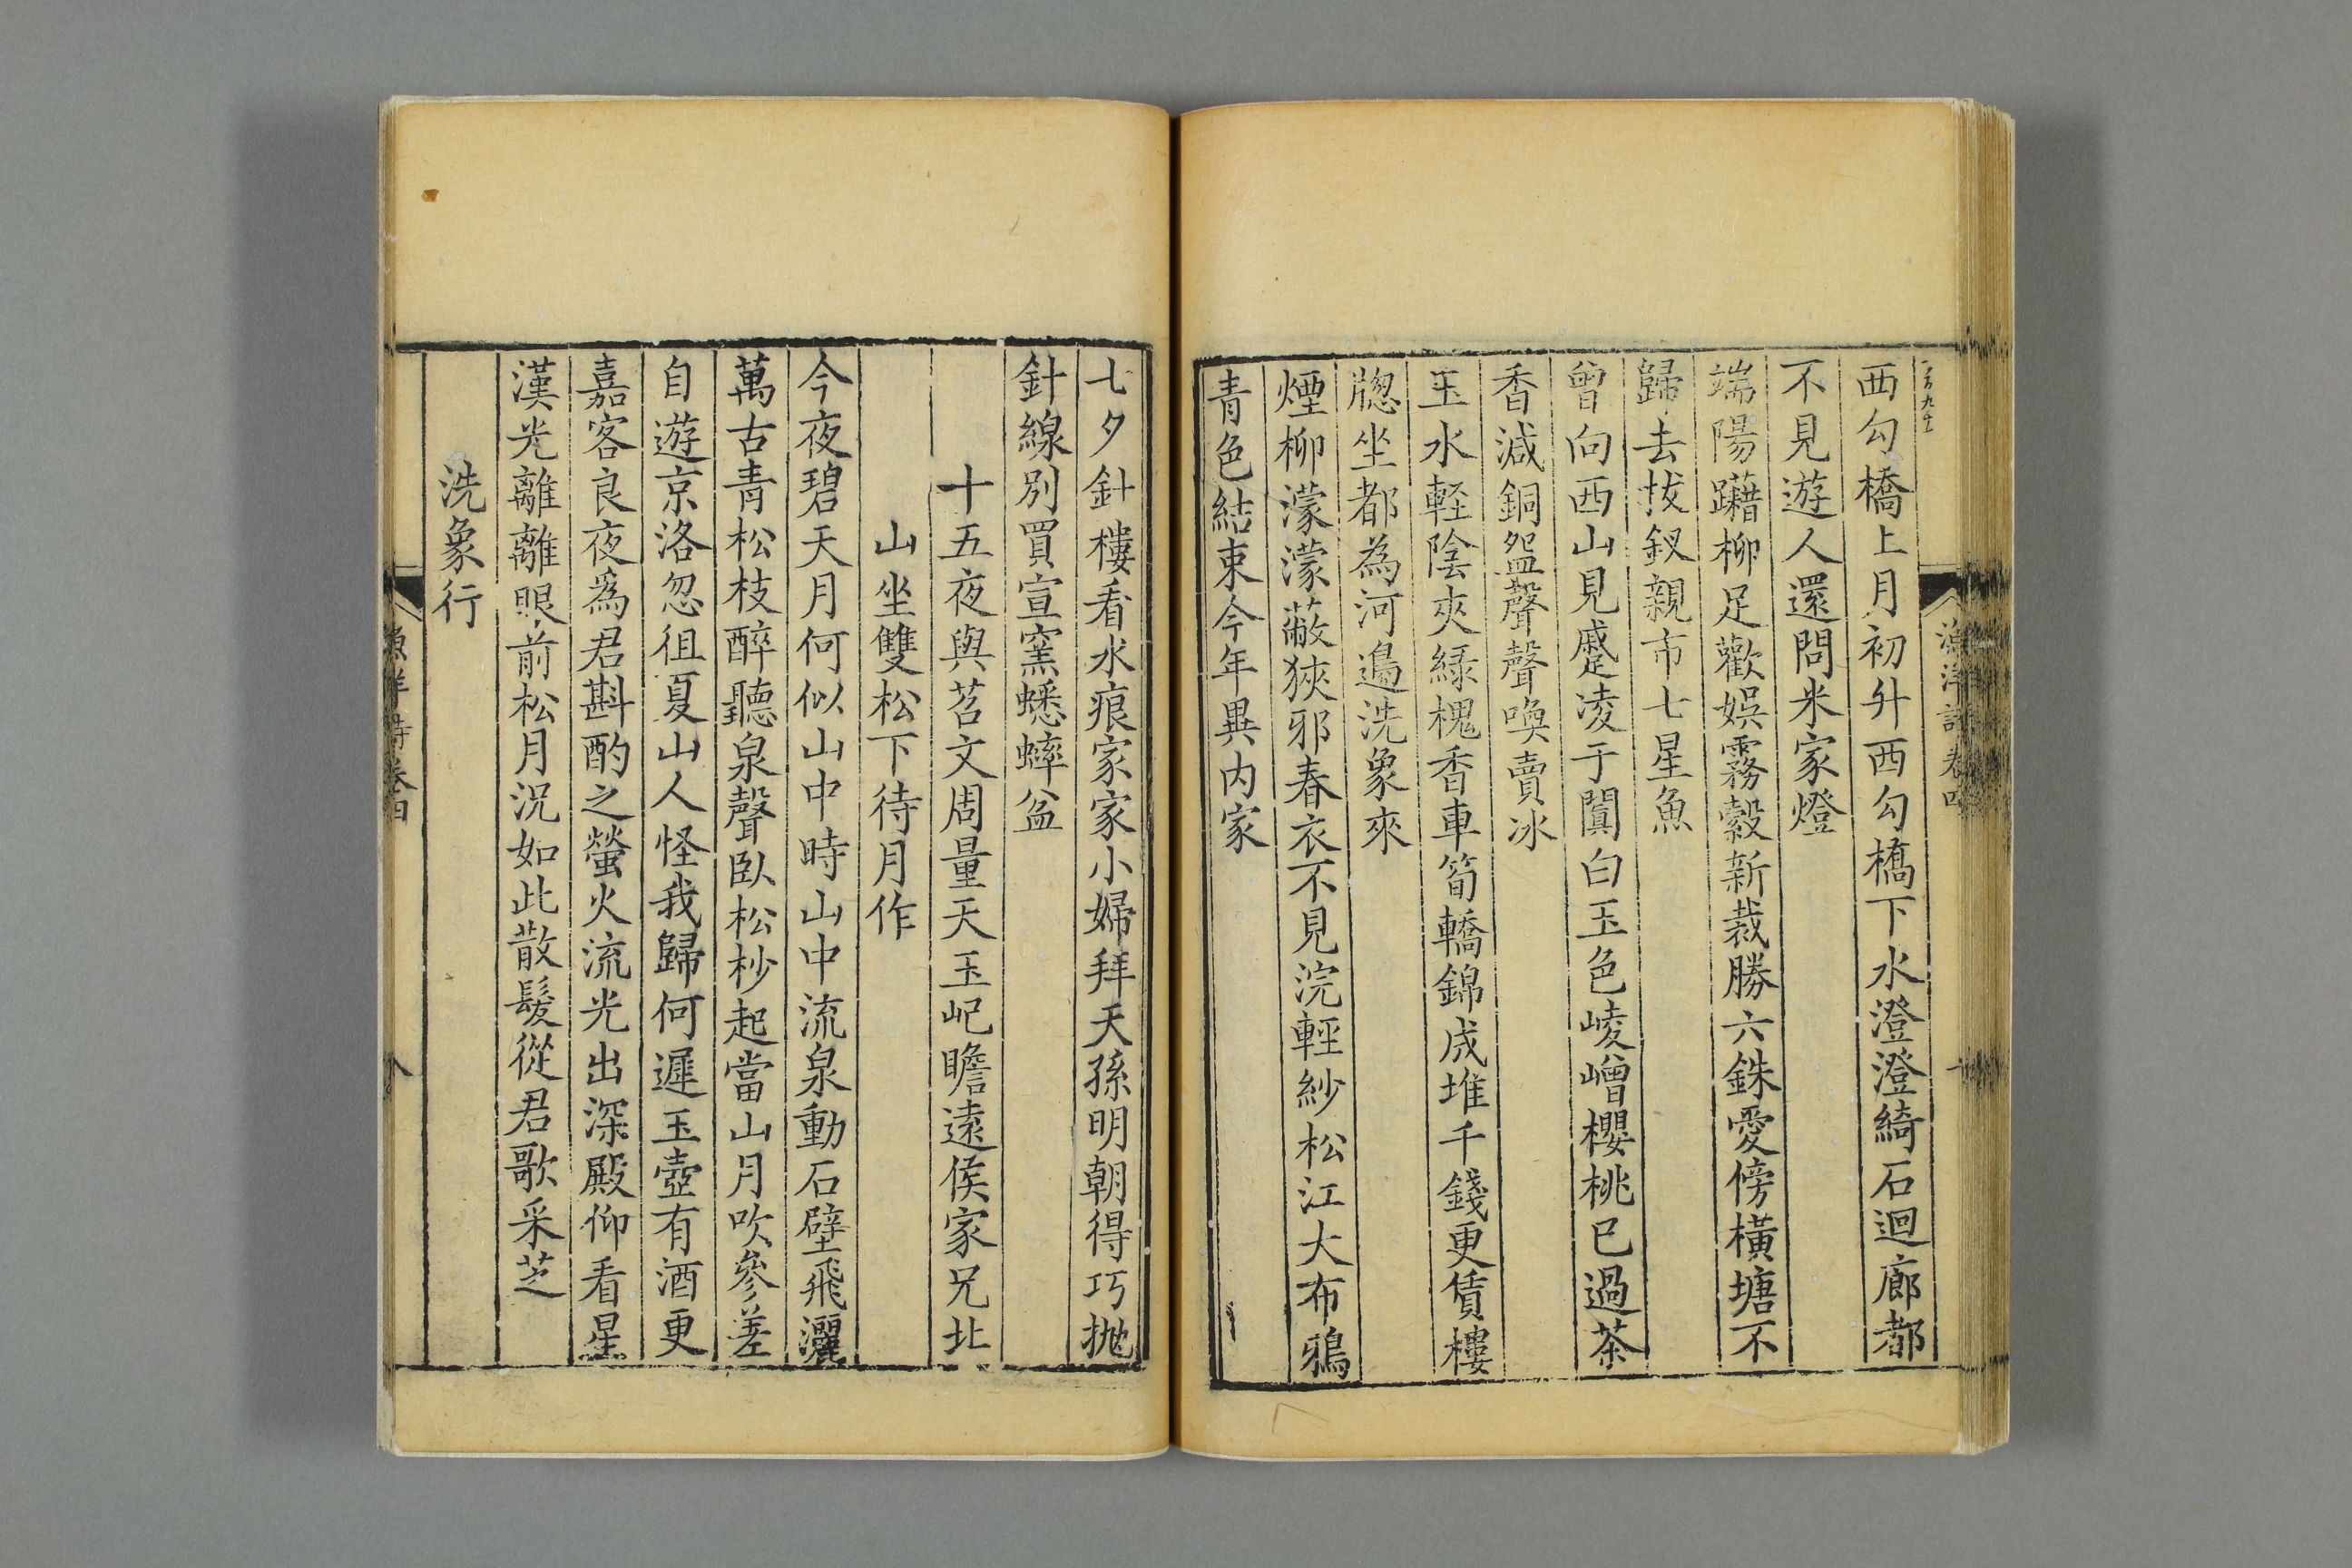 西勾橋上月初升西勾橋下水澄澄綺石迴廊都
不見遊人還問米家燈
端陽躤柳足歡娛霧縠新裁勝六銖愛傍橫塘不
歸去拔釵親市七星魚
曾向西山見蹙凌于闐白玉色崚嶒櫻桃已過茶
香減銅盌聲聲喚賣冰
玉水輕陰夾綠槐香車筍轎錦成堆千錢更賃樓
牕坐都為河邊洗象來
煙柳濛濛蔽狹邪春衣不見浣輕紗松江大布鴉
青色結束今年異內家
七夕針樓看水痕家家小婦拜天孫明朝得巧拋
針線別買宣窯蟋蟀盆
十五夜與苕文周量天玉屺瞻遠侯家兄北
山坐雙松下待月作
今夜碧天月何似山中時山中流泉動石壁飛灑
萬古青松枝醉聽泉聲臥松杪起當山月吹參差
自遊京洛忽徂夏山人怪我歸何遲玉壺有酒更
嘉客良夜為君斟酌之螢火流光出深殿仰看星
漢光離離眼前松月況如此散髮從君歌采芝
洗象行
漁洋詩卷四
漁洋詩卷四
八